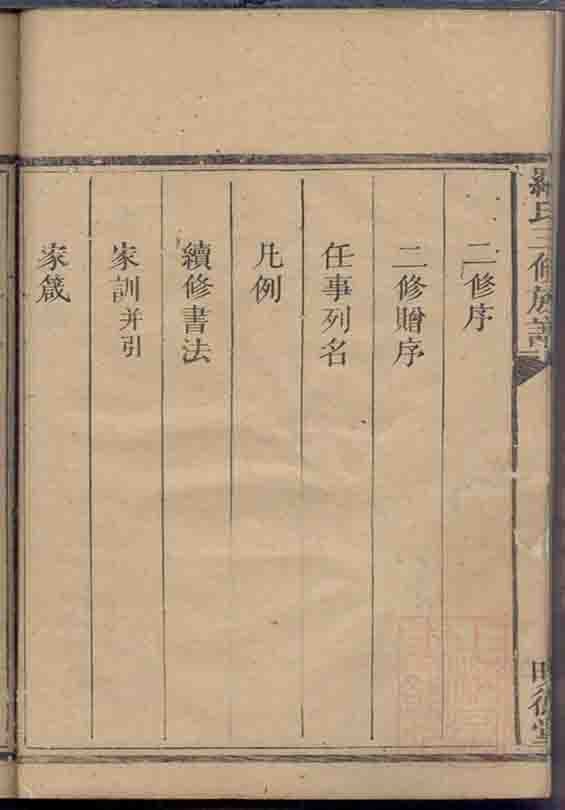 氏三修族譜
明德堂
二修序
二修贈序
任事列名
凡例
續修書法
家訓并引
家箴